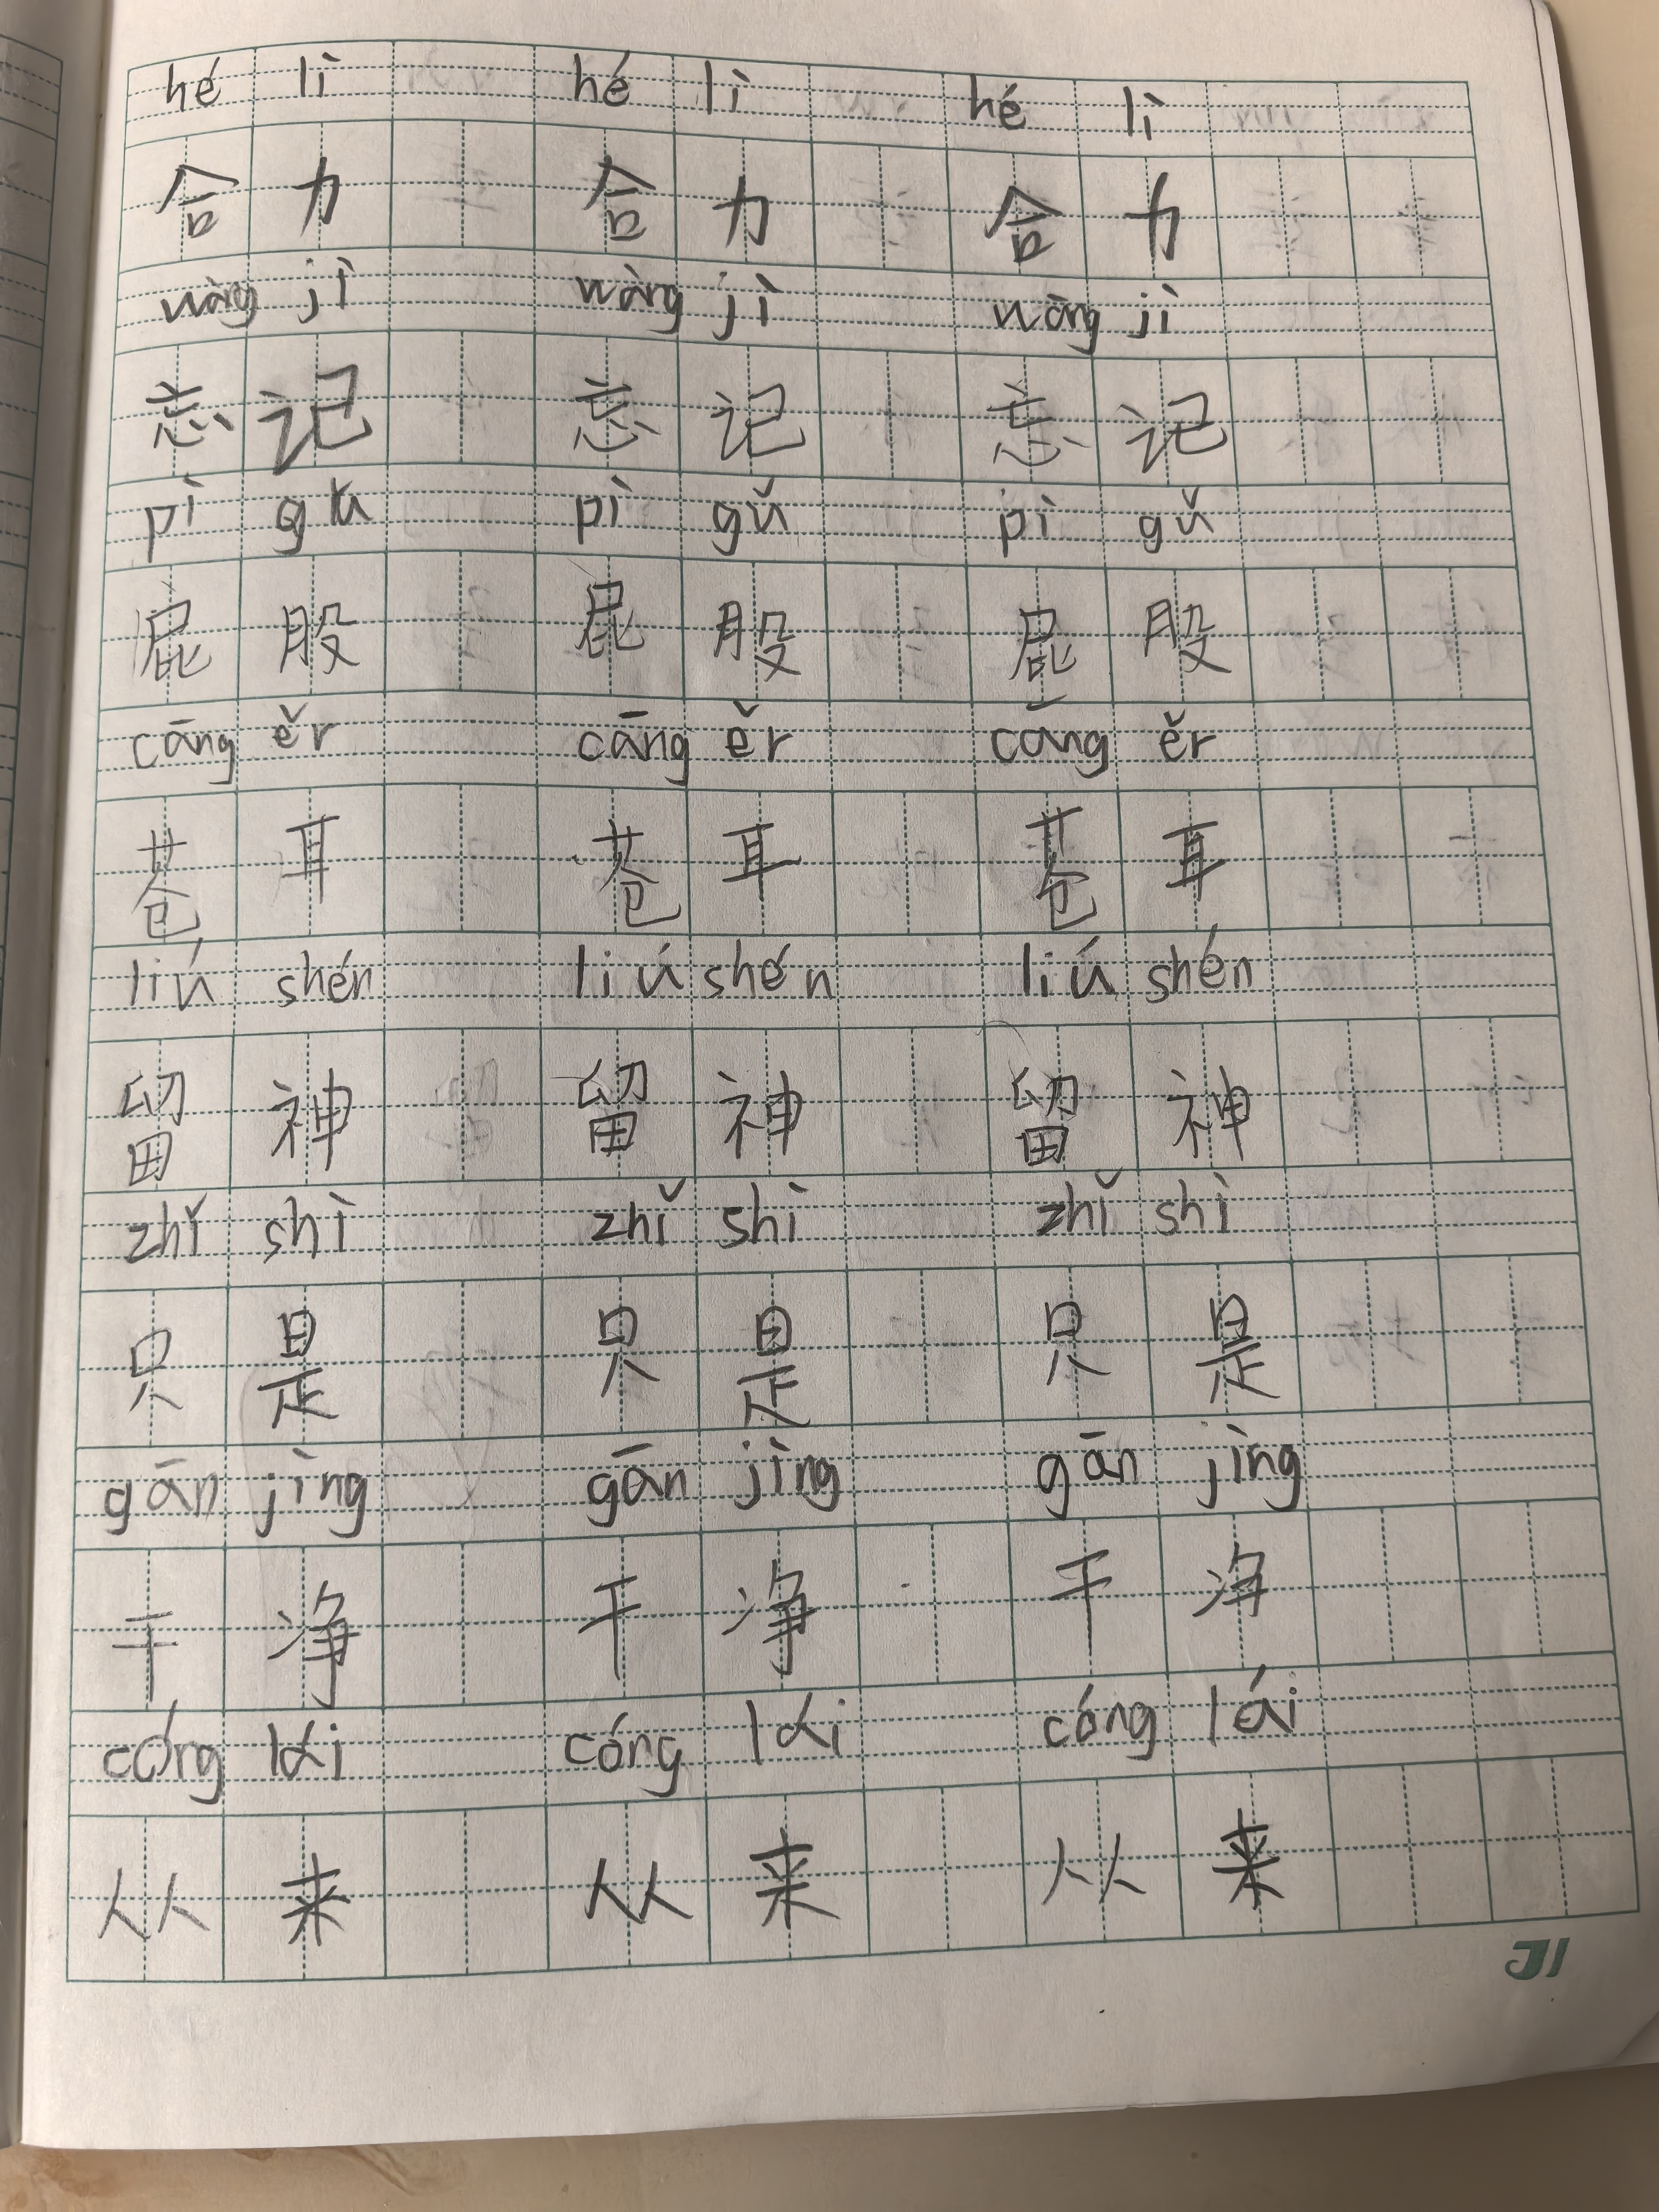 hé lì hé lì hé lì
合力 合力 合力
wàng jì wàng jì wàng jì
忘记 忘记 忘记
pì gǔ pì gǔ pì gǔ
屁股 屁股 屁股
cāng ěr cāng ěr cāng ěr
苍耳 苍耳 苍耳
liú shén liú shén liú shén
留神 留神 留神
zhǐ shì zhǐ shì zhǐ shì
只是 只是 只是
gān jìng gān jìng gān jìng
干净 干净 干净
cóng lái cóng lái cóng lái
从来 从来 从来